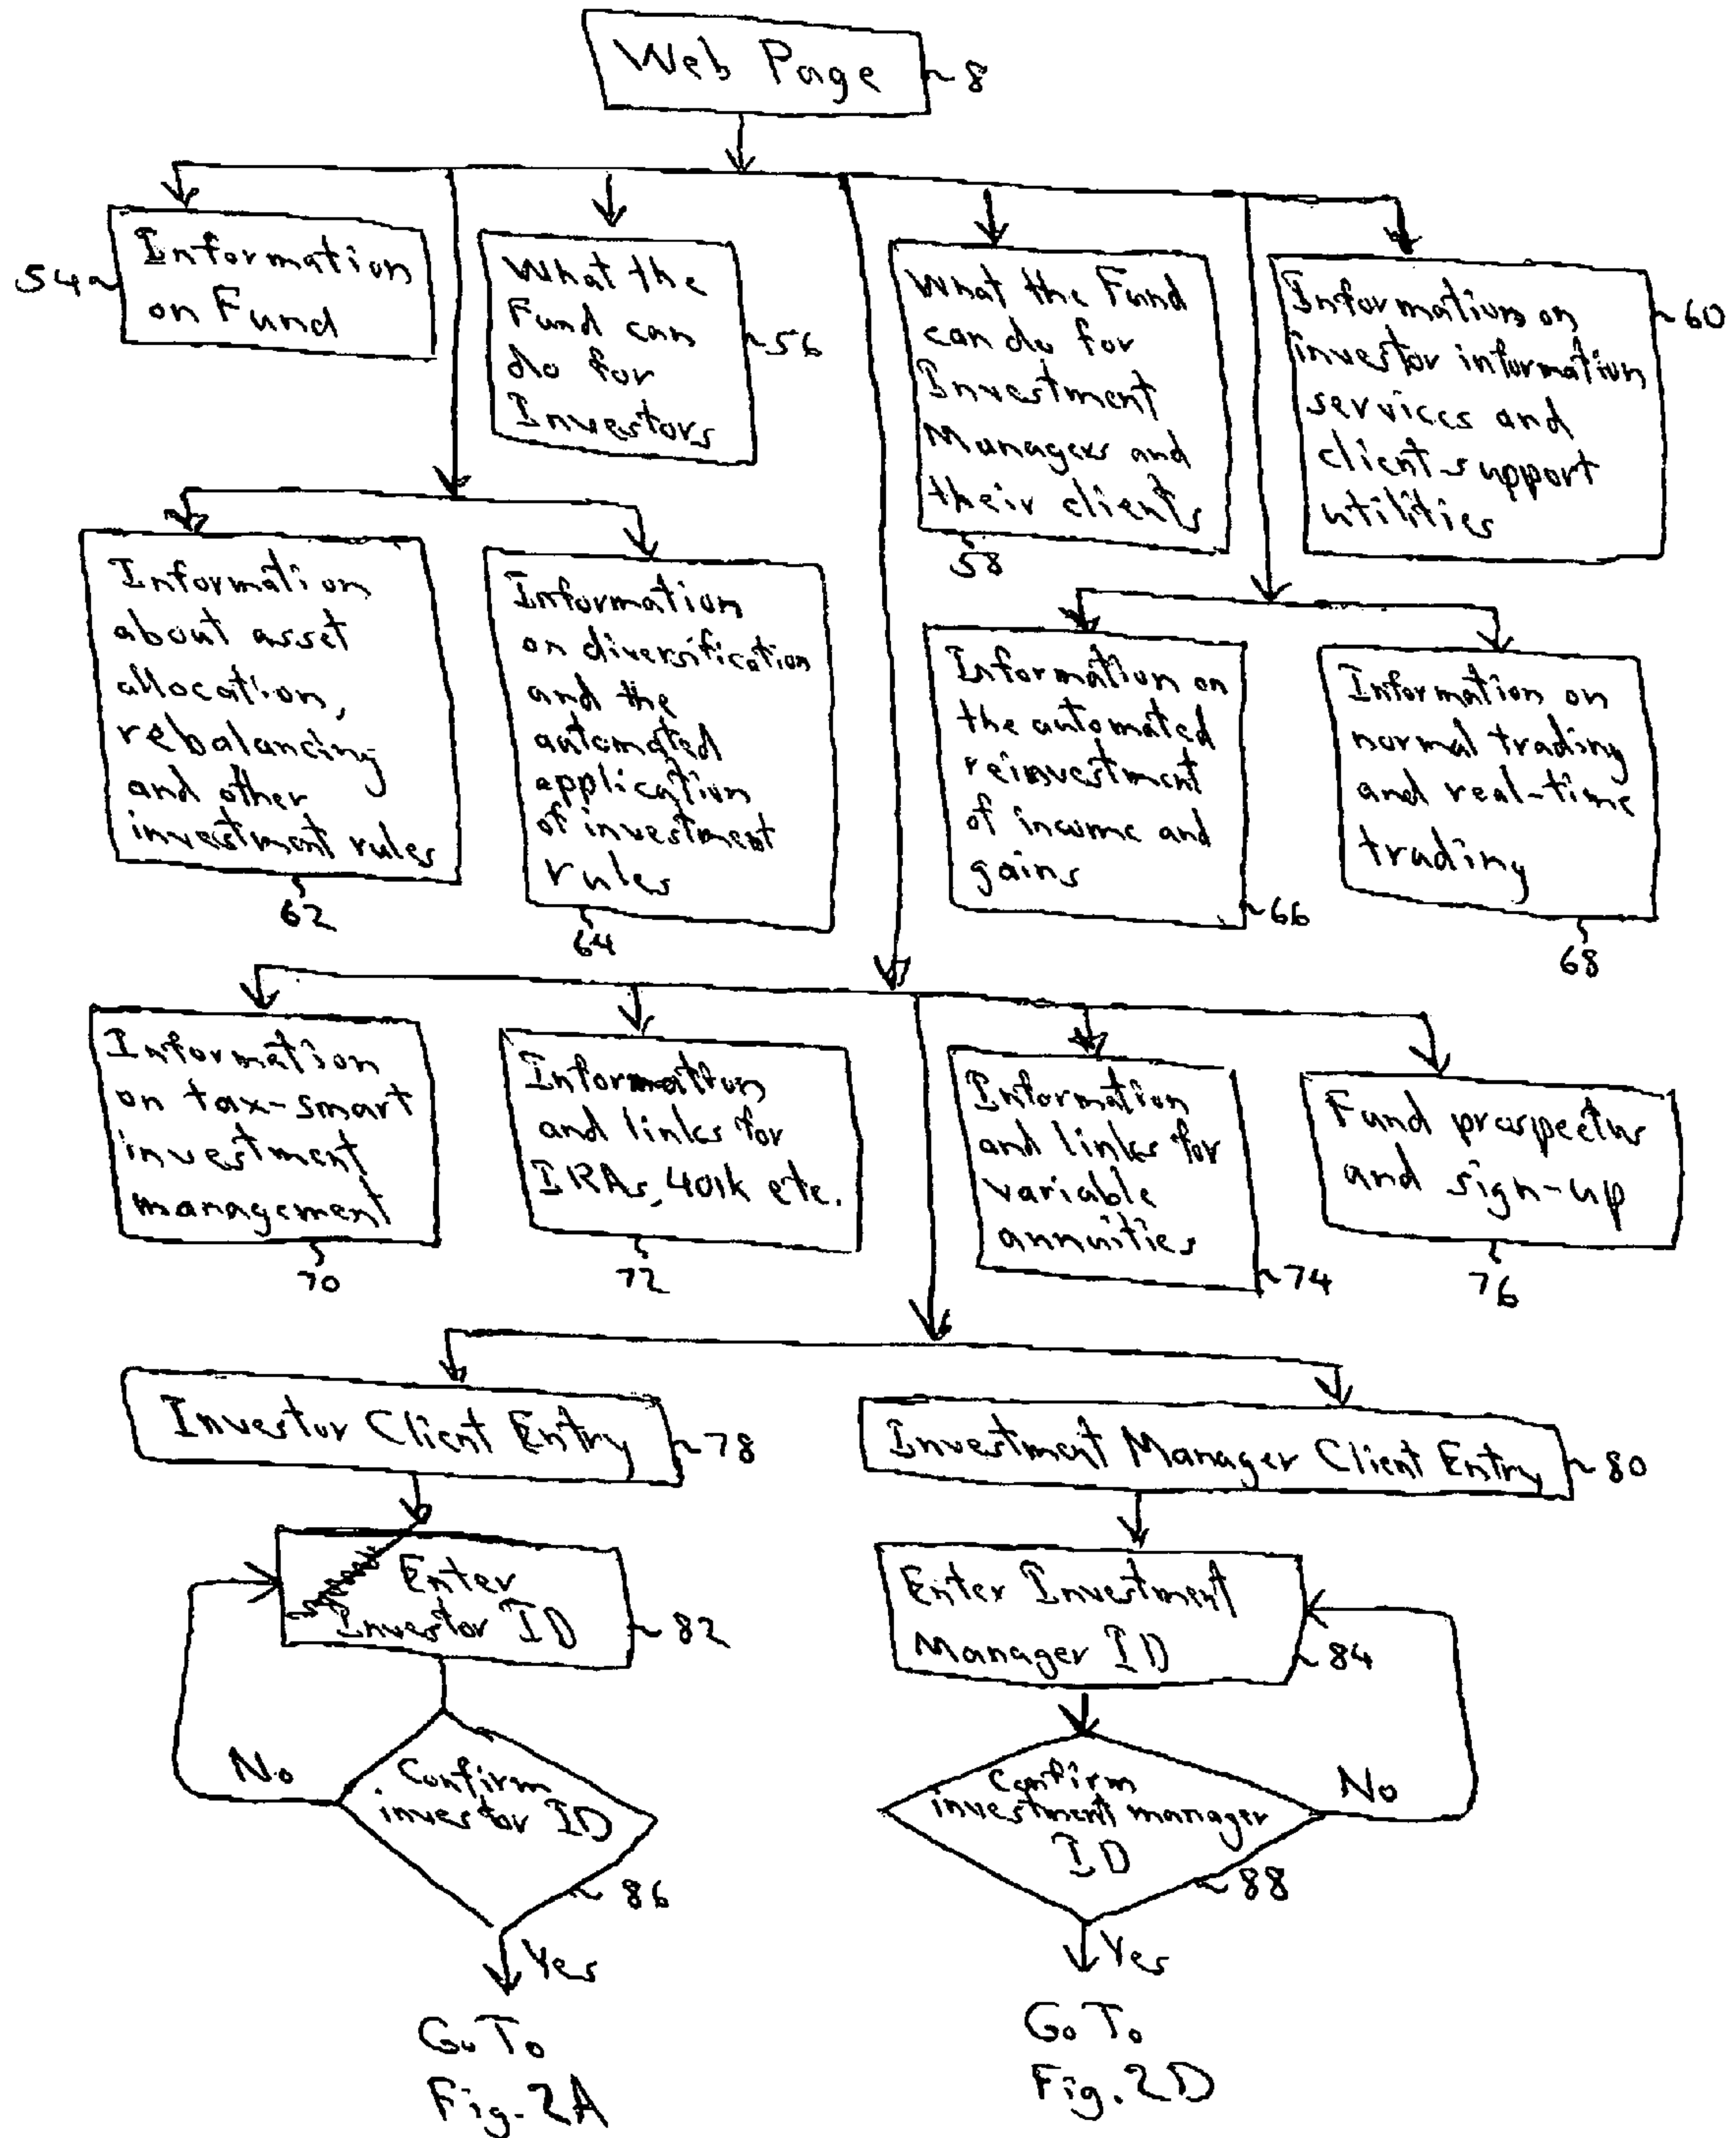 Web Page
8
Information
on Fund
54
What the
Fund can
do for
Investors
56
What the Fund
can do for
Investment
Managers and
their clients
58
Information on
investor information
services and
client support
utilities
60
Information
about asset
allocation,
rebalancing
and other
investment rules
62
Information
on diversification
and the
automated
application
of investment
rules
64
Information on
the automated
reinvestment
of income and
gains
66
Information on
normal trading
and real-time
trading
68
Information
on tax-smart
investment
management
70
Information
and links for
IRAs, 401k etc.
72
Information
and links for
variable
annuities
74
Fund prospectus
and sign-up
76
Investor Client Entry
78
Investment Manager Client Entry
80
Enter
Investor ID
82
Enter Investment
Manager ID
84
Confirm
investor ID
86
No
Yes
Confirm
investment manager
ID
88
No
Yes
Go To
Fig. 2A
Go To
Fig. 2D